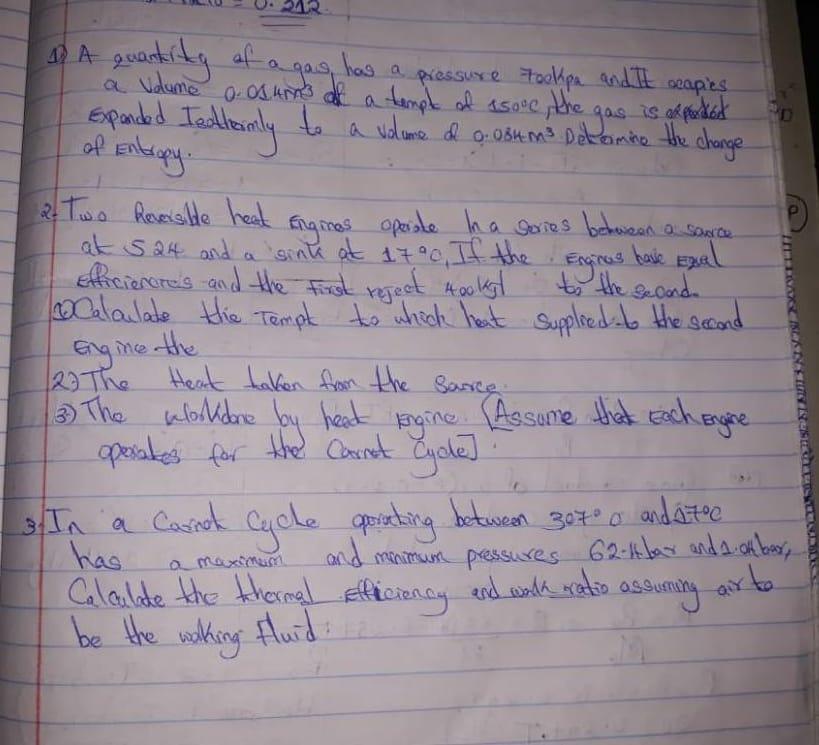 = 0.212.
1) A quantity of a gas has a pressure 700Kpa and It ocapies
a Volume 0.014m³ of a tempt of 150°c, the gas is
Expanded Isothermly to a volume of 0.084m³ Determine the change
of Entropy.
2. Two Reversible heat Engines operate In a series between a source
at 524 and a sink at 17°C, If the Engines have Equal
Efficiencies and the first reject 400KJ to the second.
1) Calculate the Tempt to which heat Supplied to the second
Engine the
2) The Heat taken from the Source.
3) The Workdone by heat Engine. [Assume that Each Engine
operates for the Carnot Cycle]
3. In a Carnot Cycle operating between 307°C and 17°C
has a maximum and minimum pressures 62.4bar and 1.04bar,
Calculate the thermal Efficiency and work ratio assuming air to
be the walking fluid.